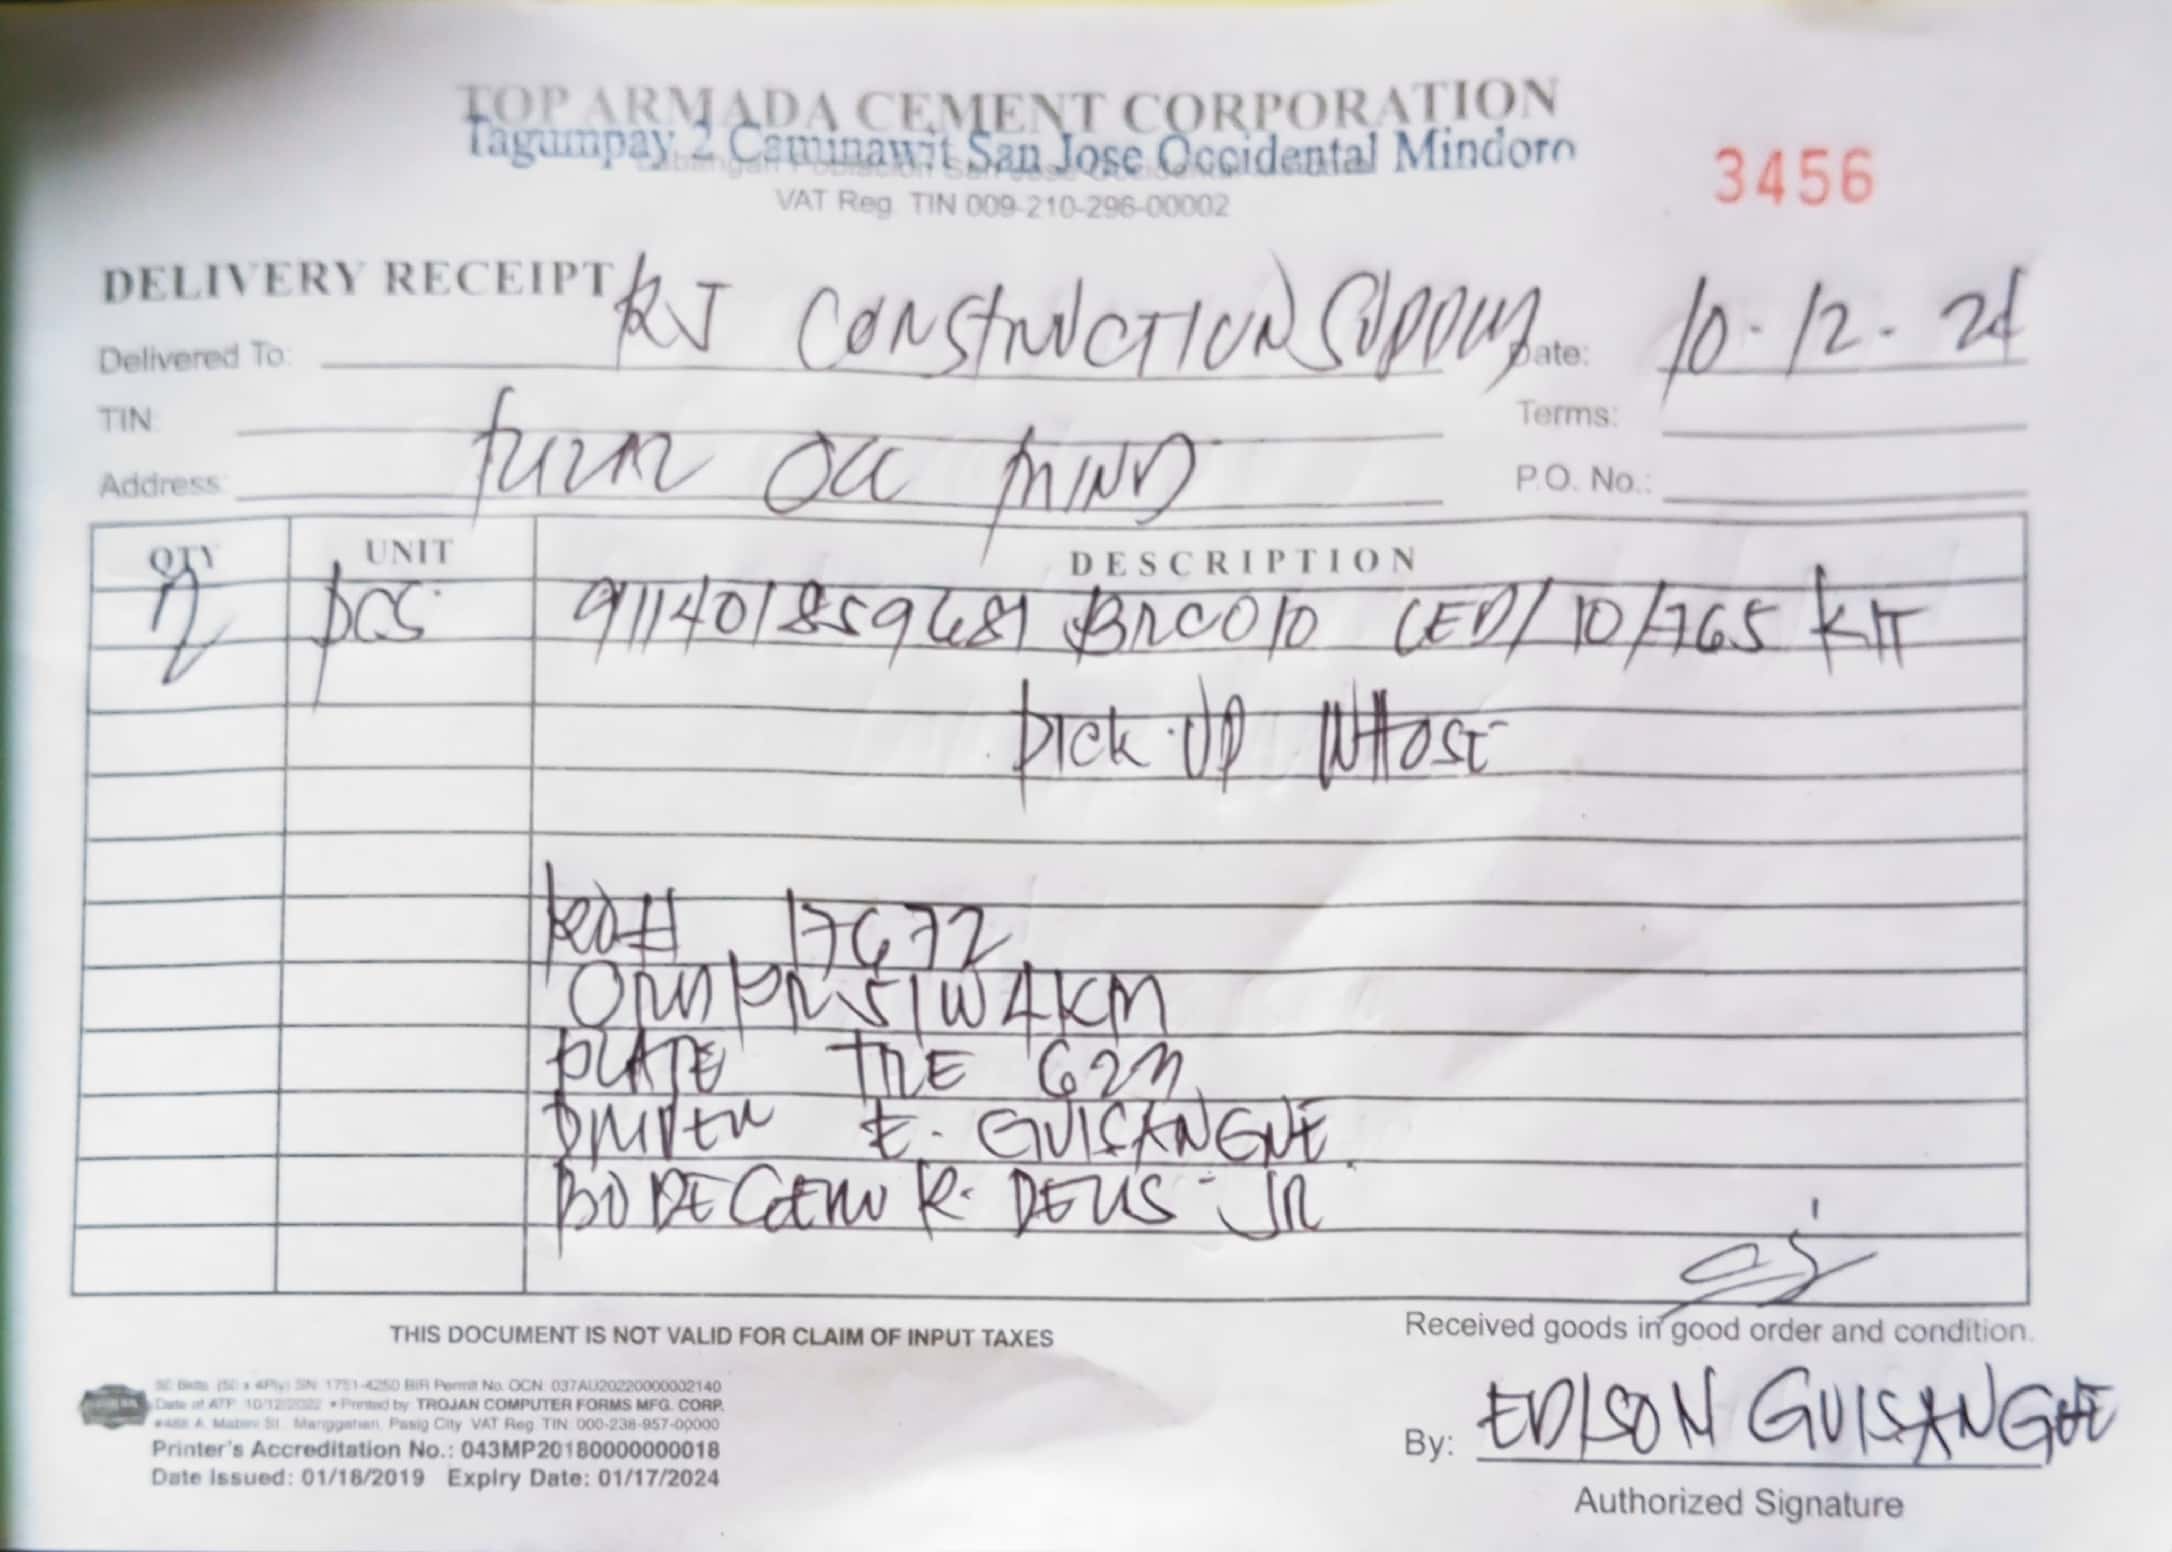 TOP ARMADA CEMENT CORPORATION
Tagumpay 2 Caminawit San Jose Occidental Mindoro
VAT Reg. TIN 009-210-296-00002
3456
DELIVERY RECEIPT
Delivered To: RJ CONSTRUCTION SUPPLY Date: 10-12-24
TIN: Terms:
Address: OCC MIND P.O. No.:
QTY UNIT DESCRIPTION
2 PCS 911401859681 BRC010 LED/10/765 KIT
PICK UP WHOSE
17672
PLATE 623
DRIVER E. GUISANGUE
BODEGERO R. DEUS JR
THIS DOCUMENT IS NOT VALID FOR CLAIM OF INPUT TAXES
Received goods in good order and condition.
50 Bklts. (50 x 4Ply) SN: 1751-4250 BIR Permit No. OCN: 037AU20220000002140
Date of ATP: 10/12/2022 • Printed by: TROJAN COMPUTER FORMS MFG. CORP.
#488 A. Mabini St., Manggahan, Pasig City VAT Reg. TIN: 000-238-957-00000
Printer's Accreditation No.: 043MP20180000000018
Date Issued: 01/18/2019 Expiry Date: 01/17/2024
By: EDISON GUISANGUE
Authorized Signature